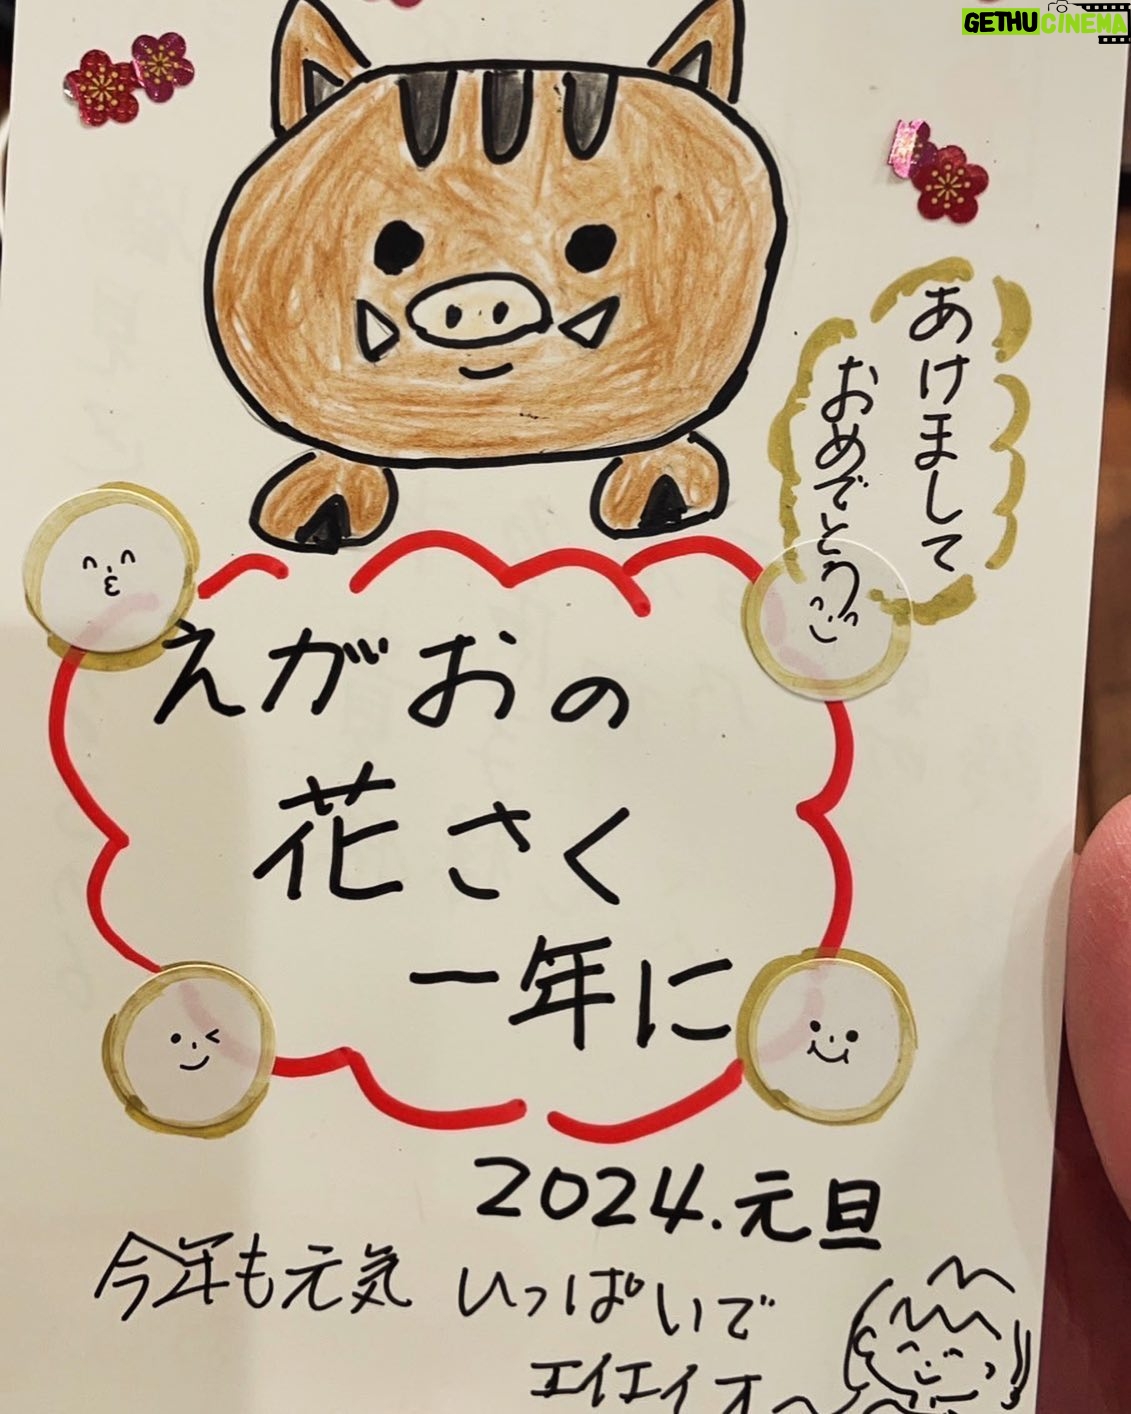 GETHUCINEMA
あけまして
おめでとう
えがおの
花さく
一年に
2024.元旦
今年も元気いっぱいで
エイエイオー